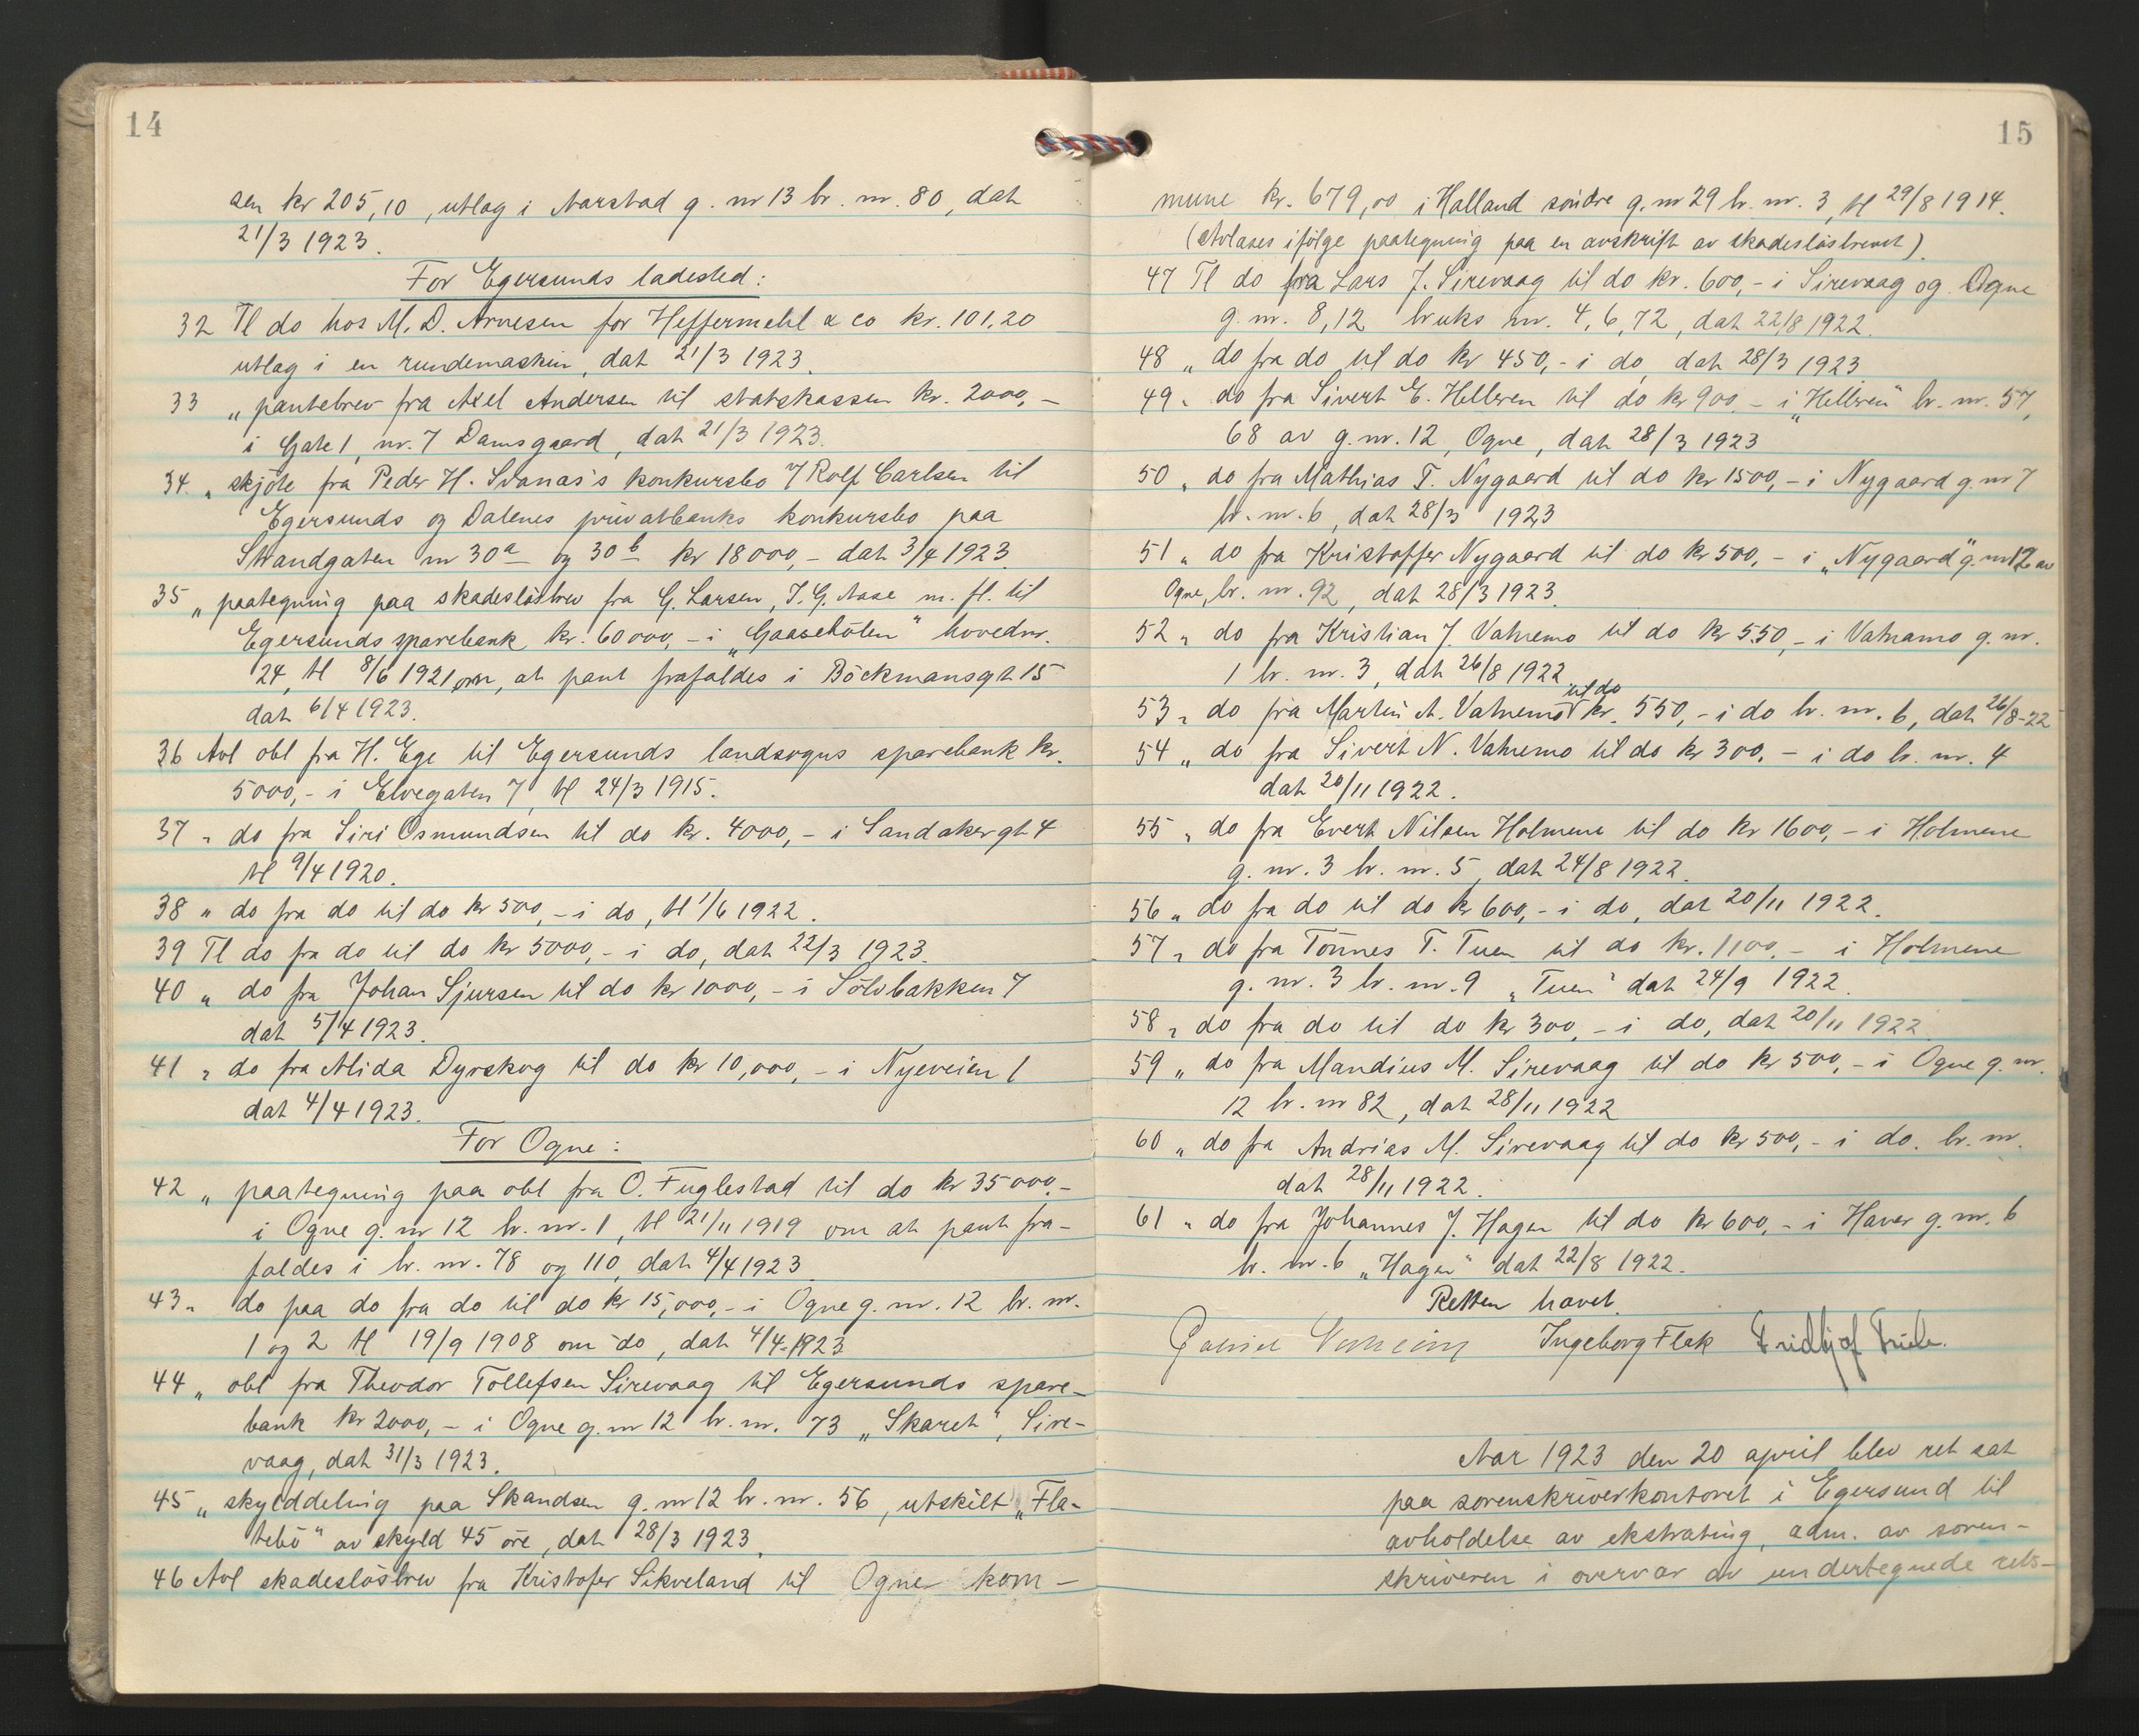 14
sen kr 205,10, utlag i Aarstad g. nr 13 br. nr. 80, dat
21/3 1923.
For Egersunds ladested:
32 Tl do hos M. D. Arnesen for Heffermehl & co kr. 101,20
utlag i en rundemaskin, dat 21/3 1923.
33 „ pantebrev fra Axel Andersen til statskassen kr. 2000,-
i Gate 1, nr. 7 Damsgaard, dat 21/3 1923.
34 „ skjöte fra Peder H. Svanæs's konkursbo v/ Rolf Carlsen til
Egersunds og Dalenes privatbanks konkursbo paa
Strandgaten nr 30a og 30b kr 18000,- dat 3/4 1923.
35 „ paategning paa skadeslösbrev fra G. Larsen, T. G. Aase m. fl. til
Egersunds sparebank kr. 60000,- i „Gaasehölen" hovednr.
24, tl 8/6 1921 om, at pant frafaldes i Böckmansgt 15
dat 6/4 1923.
36 Avl obl fra H. Ege til Egersunds landsogns sparebank kr.
5000,- i Elvegaten 7, tl 24/3 1915.
37 „ do fra Siri Osmundsen til do kr. 4000,- i Sandakergt 4
tl 9/4 1920.
38 „ do fra do til do kr 500,- i do, tl 1/6 1922.
39 Tl do fra do til do kr 5000,- i do, dat 22/3 1923.
40 „ do fra Johan Sjursen til do kr 1000,- i Sölvbakken 7
dat 5/4 1923.
41 „ do fra Alida Dyrskog til do kr 10,000,- i Nyeveien 1
dat 4/4 1923.
For Ogne:
42 „ paategning paa obl fra O. Fuglestad til do kr 35000,-
i Ogne g. nr 12 br. nr. 1, tl 21/11 1919 om at pant fra-
faldes i br. nr. 78 og 110, dat 4/4 1923.
43 „ do paa do fra do til do kr 15,000,- i Ogne g. nr. 12 br. nr.
1 og 2 tl 19/9 1908 om do, dat 4/4-1923
44 „ obl fra Theodor Tollefsen Sirevaag til Egersunds spare-
bank kr 2000,- i Ogne g. nr 12 br. nr. 73 „Skaret", Sire-
vaag, dat 31/3 1923.
45 „ skylddeling paa Skandsen g. nr 12 br. nr. 56, utskilt „Fla-
tebö" av skyld 45 öre, dat 28/3 1923.
46 Avl skadeslösbrev fra Kristofer Sikveland til Ogne kom-
15
mune kr. 679,00 i Halland söndre g. nr 29 br. nr. 3, tl 29/8 1914.
(Avlæses ifölge paategning paa en avskrift av skadeslösbrevet).
47 Tl do fra Lars J. Sirevaag til do kr. 600,- i Sirevaag og Ogne
g. nr. 8, 12 bruks nr. 4, 6, 72, dat 22/8 1922.
48 „ do fra do til do kr 450,- i do, dat 28/3 1923
49 „ do fra Sivert E. Hellren til do kr 900,- i „Hellren" br. nr. 57,
68 av g. nr. 12, Ogne, dat 28/3 1923
50 „ do fra Mathias T. Nygaard til do kr 1500,- i Nygaard g. nr 7
br. nr. 6, dat 28/3 1923
51 „ do fra Kristoffer Nygaard til do kr 500,- i „Nygaard" g. nr 12 av
Ogne, br. nr. 92, dat 28/3 1923.
52 „ do fra Kristian J. Vatnemo til do kr 550,- i Vatnamo g. nr.
1 br. nr. 3, dat 26/8 1922
53 „ do fra Martin A. Vatnemo til do kr. 550,- i do br. nr. 6, dat 26/8-22
54 „ do fra Sivert N. Vatnemo til do kr 300,- i do br. nr. 4
dat 20/11 1922.
55 „ do fra Evert Nilsen Holmene til do kr 1600,- i Holmene
g. nr. 3 br. nr. 5, dat 24/8 1922.
56 „ do fra do til do kr 600,- i do, dat 20/11 1922.
57 „ do fra Tönnes T. Tuen til do kr. 1100,- i Holmene
g. nr. 3 br. nr. 9 „Tuen" dat 24/9 1922.
58 „ do fra do til do kr 300,- i do, dat 20/11 1922
59 „ do fra Mandius M. Sirevaag til do kr 500,- i Ogne g. nr.
12 br. nr 82, dat 28/11 1922
60 „ do fra Andrias M. Sirevaag til do kr 500,- i do. br. nr.
dat 28/11 1922.
61 „ do fra Johannes J. Hagen til do kr 600,- i Haver g. nr. 6
br. nr. 6 „Hagen" dat 22/8 1922.
Retten hævet.
Ingeborg Flak Fridtjof
Aar 1923 den 20 april blev ret sat
paa sorenskriverkontoret i Egersund til
avholdelse av ekstrating, adm. av soren-
skriveren i overvær av undertegnede rets-